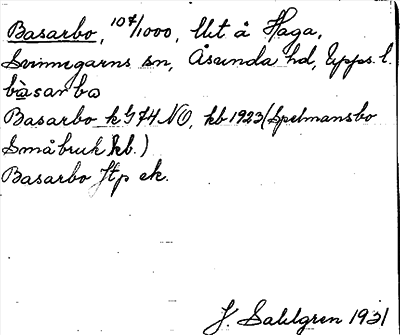 Basarbo, 107/1000, Ut å Haga,
Svinnegarns sn, Åsunda hd, Upps. l.
bàsarbω
Basarbo k⁶ 974 NO, kb 1923 (Spelmansbo
Småbruk kb.)
Basarbo ftp ek.
J. Sahlgren 1931